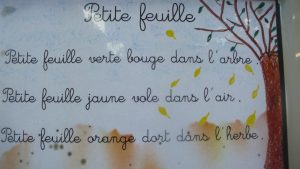 Petite feuille
Petite feuille verte bouge dans l'arbre.
Petite feuille jaune vole dans l'air.
Petite feuille orange dort dans l'herbe.